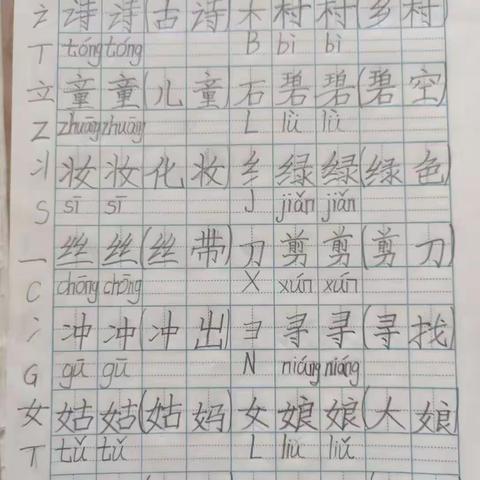 诗 诗(古 诗 木 村 村(乡 村
T tóng tóng B bì bì
立 童 童(儿 童 石 碧 碧(碧 空
Z zhuāng zhuāng L lǜ lǜ
丬 妆 妆 化 妆 纟 绿 绿(绿 色
S sī sī J jiǎn jiǎn
一 丝 丝(丝 带 刀 剪 剪(剪 刀
C chōng chōng X xún xún
冫 冲 冲(冲 出 彐 寻 寻(寻 找
G gū gū N niáng niáng
女 姑 姑(姑 妈 女 娘 娘(大 娘
T tǔ tǔ L liǔ liǔ